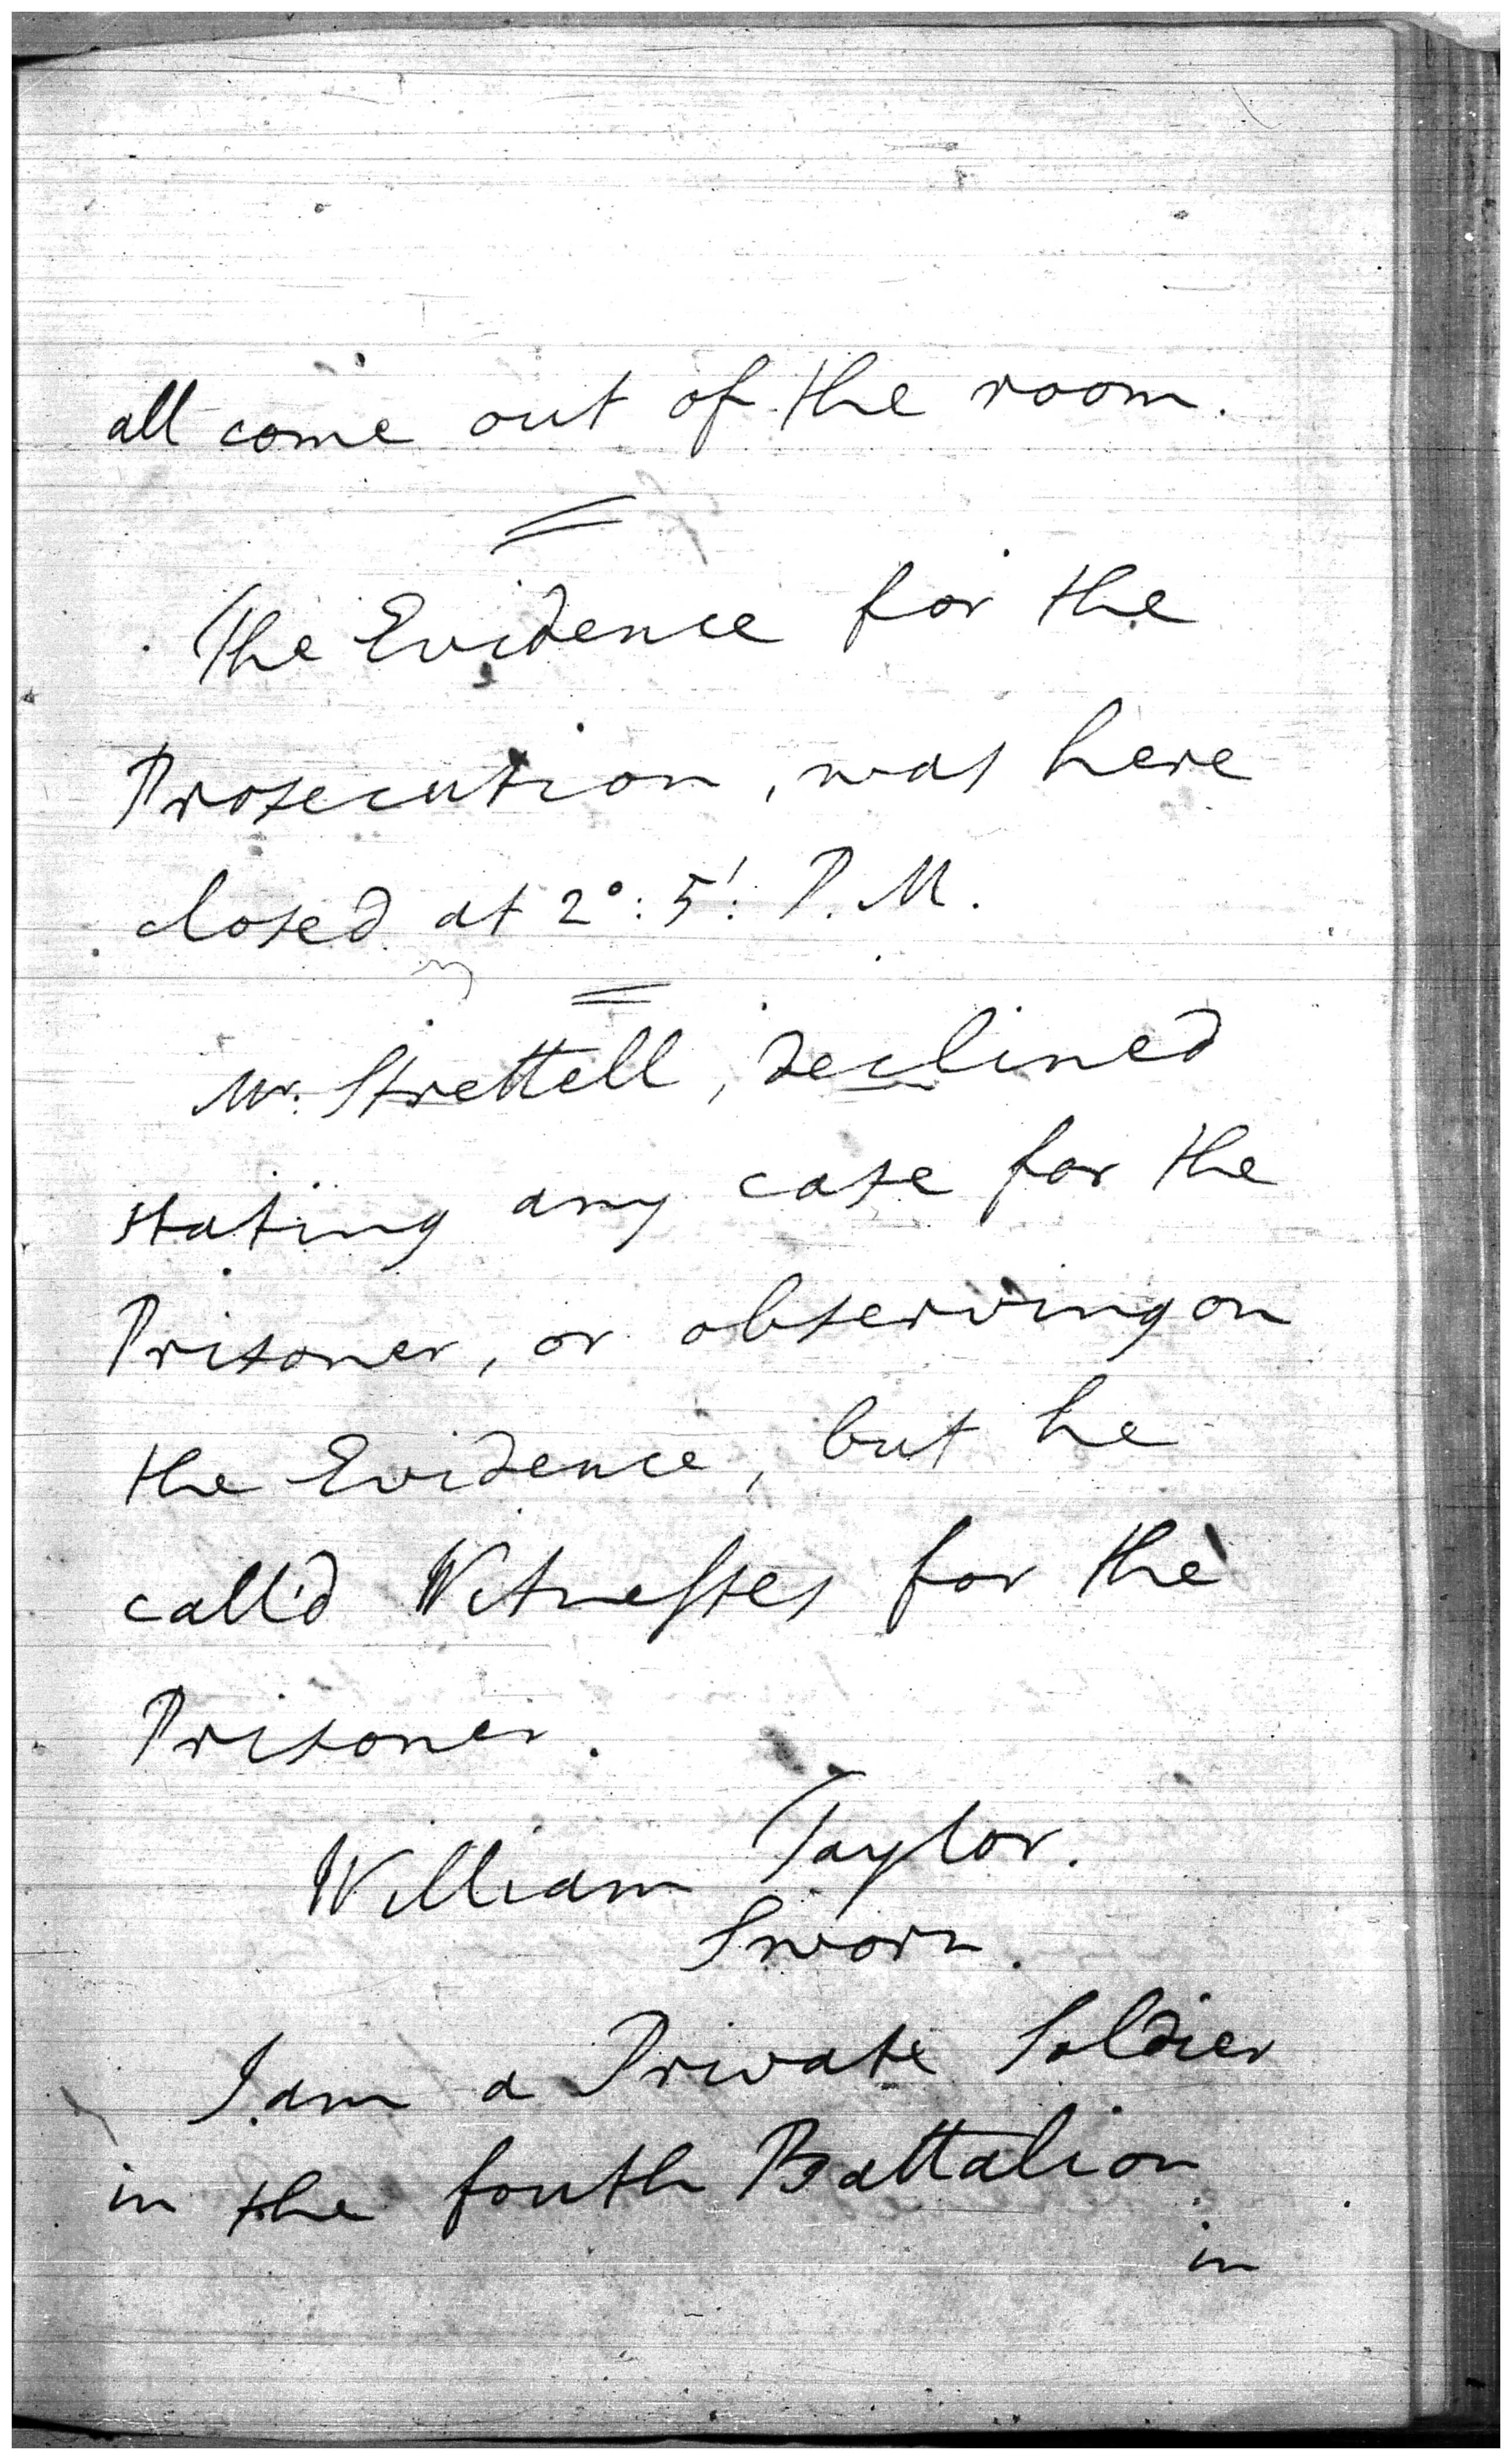 all come out of the room.
The Evidence for the
Prosecution, was here
closed at 2°: 5': P.M.
Mr. Strettell, declined
stating any case for the
Prisoner, or observing on
the Evidence, but he
call'd Witnesses for the
Prisoner.
William Taylor.
Sworn.
I am a Private Soldier
in the fouth Battalion
in